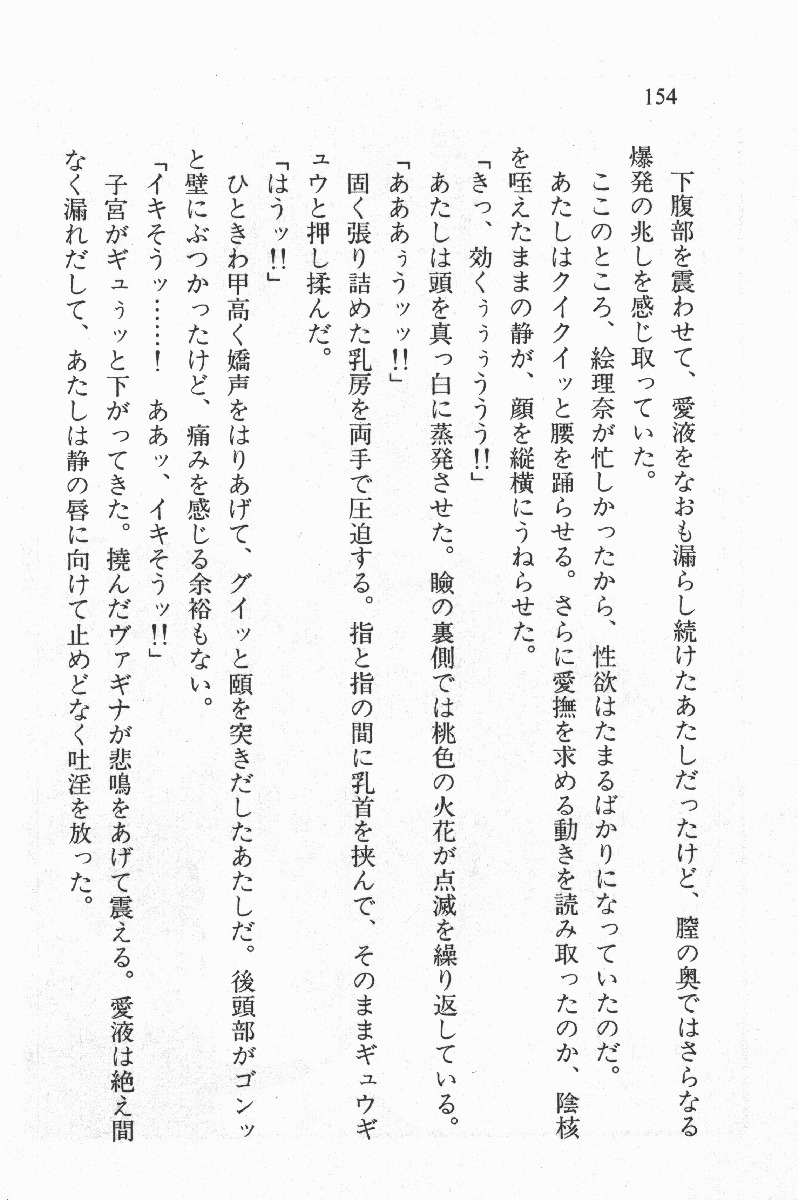 154
下腹部を震わせて、愛液をなおも漏らし続けたあたしだったけど、膣の奥ではさらなる
爆発の兆しを感じ取っていた。
ここのところ、絵理奈が忙しかったから、性欲はたまるばかりになっていたのだ。
あたしはクイクイッと腰を踊らせる。さらに愛撫を求める動きを読み取ったのか、陰核
を咥えたままの静が、顔を縦横にうねらせた。
「きっ、効くぅぅぅううう!!」
あたしは頭を真っ白に蒸発させた。瞼の裏側では桃色の火花が点滅を繰り返している。
「あああぅうッッ!!」
固く張り詰めた乳房を両手で圧迫する。指と指の間に乳首を挟んで、そのままギュウギ
ュウと押し揉んだ。
「はうッ!!」
ひときわ甲高く嬌声をはりあげて、グイッと頤を突きだしたあたしだ。後頭部がゴンッ
と壁にぶつかったけど、痛みを感じる余裕もない。
「イキそうッ……! ああッ、イキそうッ!!」
子宮がギュゥッと下がってきた。撓んだヴァギナが悲鳴をあげて震える。愛液は絶え間
なく漏れだして、あたしは静の唇に向けて止めどなく吐淫を放った。